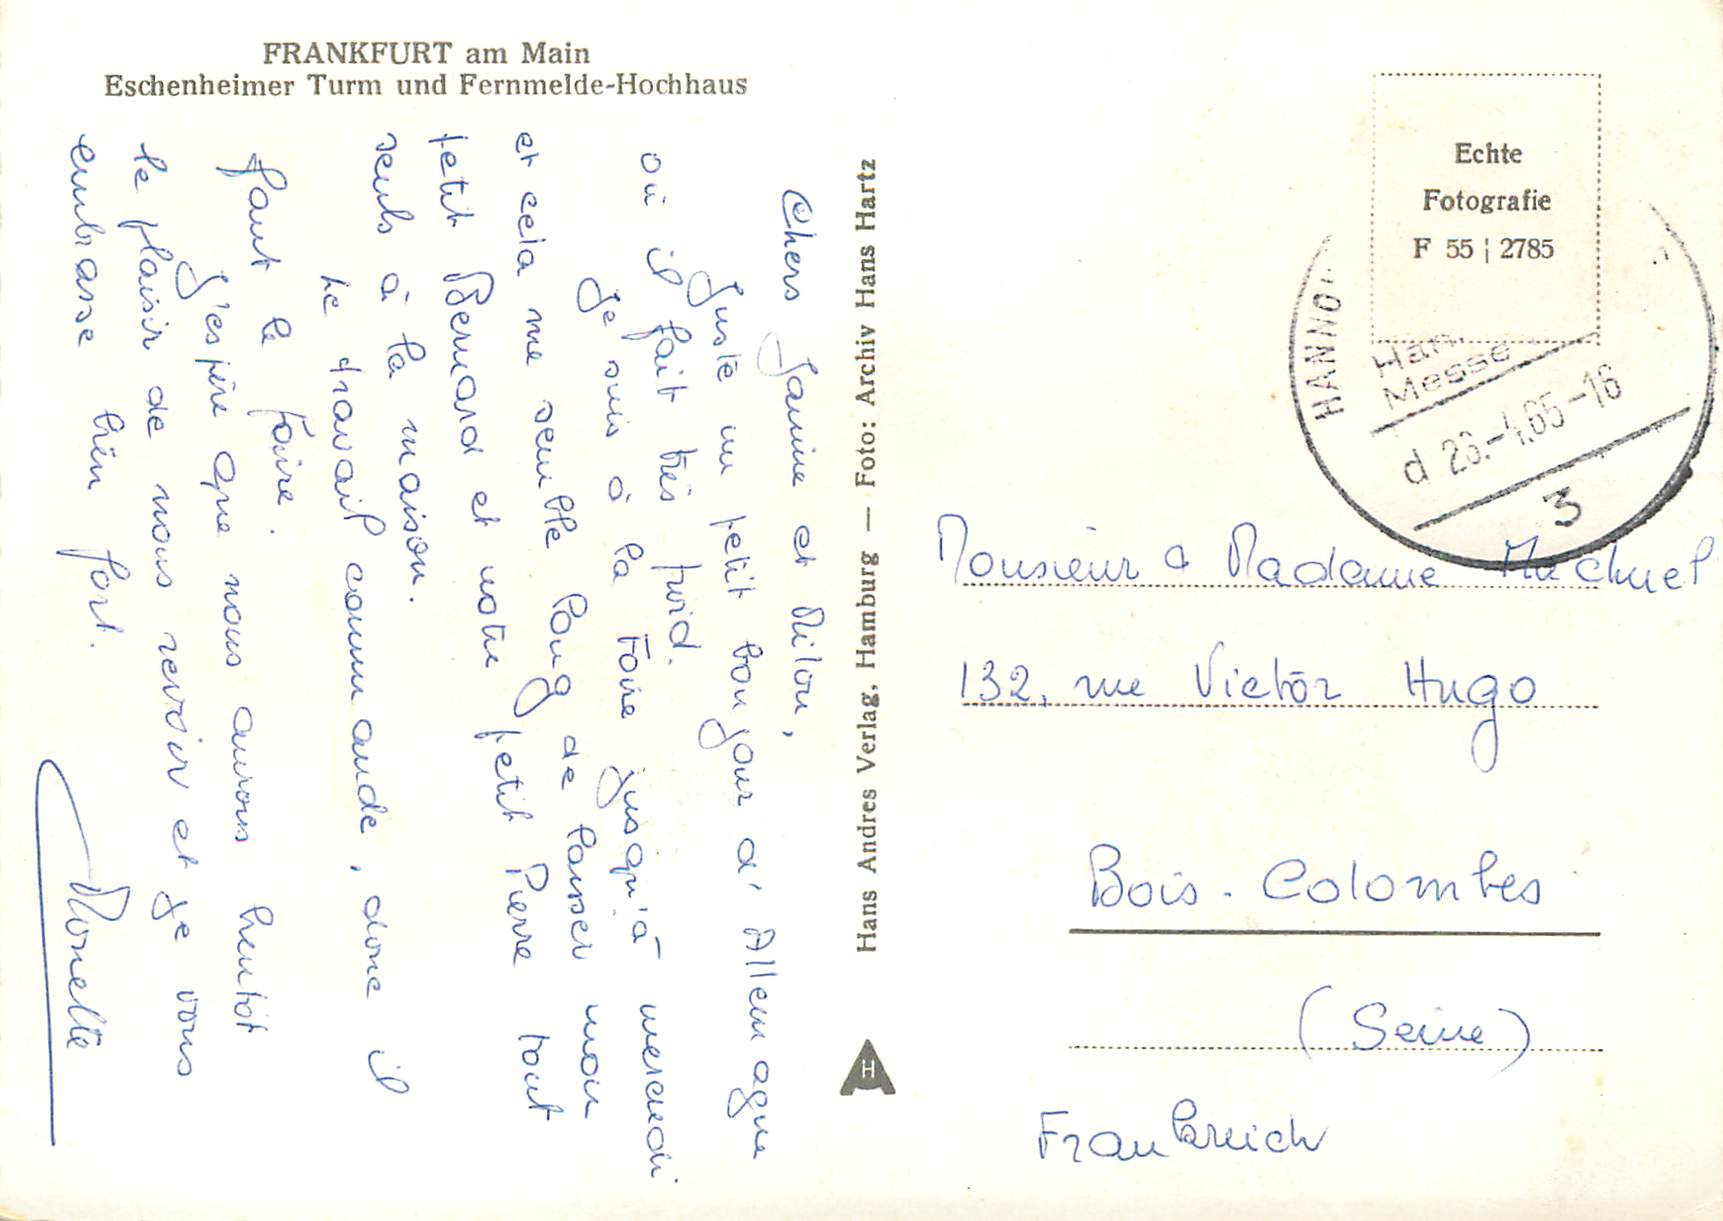 FRANKFURT am Main
Eschenheimer Turm und Fernmelde-Hochhaus
Chers Janine et Milou,
Juste un petit bonjour d'Allemagne
où il fait très froid.
Je suis à la Foire jusqu'à mercredi.
et cela me semble long de laisser mon
petit Bernard et notre petit Pierre tout
seuls à la maison.
Le travail commande, donc il
faut le faire.
J'espère que nous aurons bientôt
le plaisir de nous revoir et je vous
embrasse bien fort.
Monette
Hans Andres Verlag, Hamburg — Foto: Archiv Hans Hartz
H
Echte
Fotografie
F 55 | 2785
HANNO
Han.
Messe
d 26.-4.65-16
3
Monsieur & Madame Machuel
132, rue Victor Hugo
Bois-Colombes
(Seine)
Frankreich